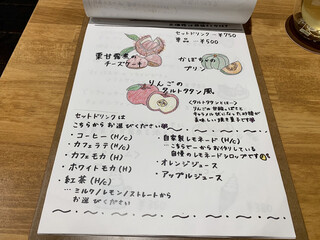 セットドリンク ー ¥750
単品 ー ¥500
栗甘露煮の
チーズケーキ
かぼちゃの
プリン
りんごの
タルトタタン風
セットドリンクは
こちらからお選びください
・コーヒー (H/c)
・カフェラテ (H/c)
・カフェモカ (H)
・ホワイトモカ (H)
・紅茶 (H/c)
…ミルク/レモン/ストレートから
お選びください
<タルトタタンとは〜>
りんごの甘酸っぱさと
キャラメルの
美味しい焼き菓子です
・自家製レモネード (H/c)
…こちらで一からお作りしている
自慢のレモネードシロップです
・オレンジジュース
・アップルジュース